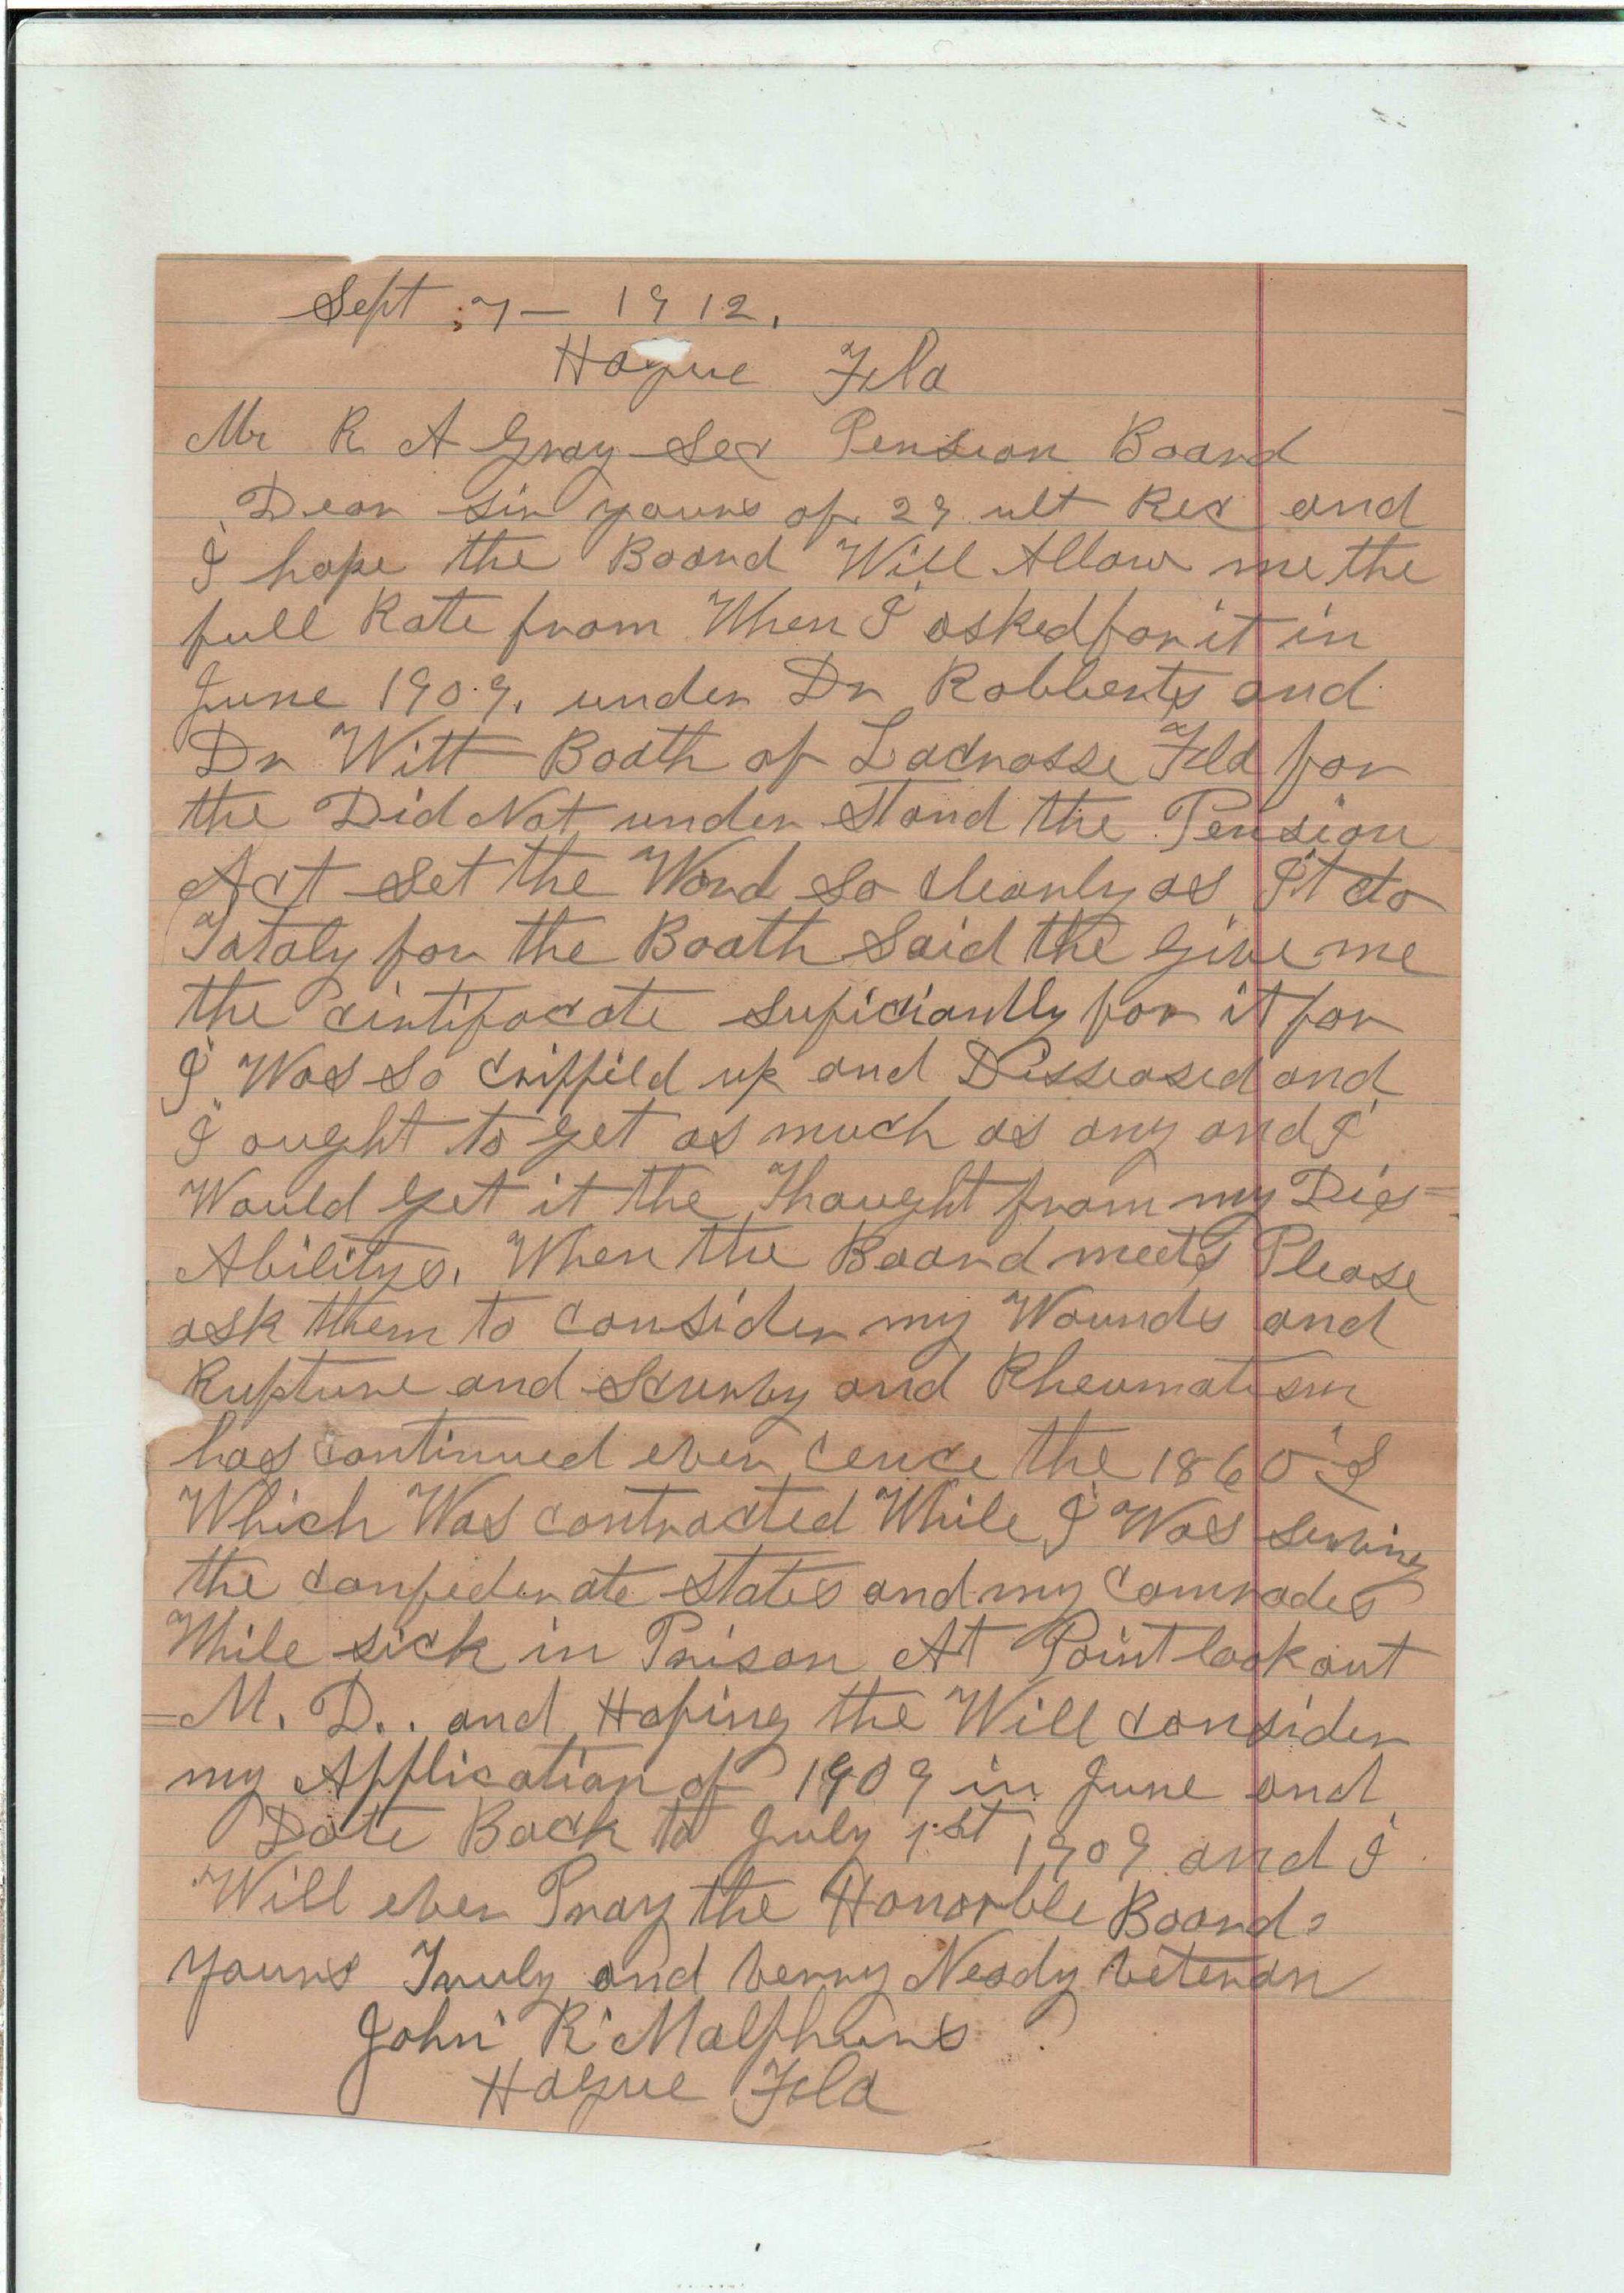 Sept. 7 — 1912.
Hague Fla
Mr R A Gray Sec Pension Board
Dear Sir yours of 29 ult Rec and
I hope the Board Will Allow me the
full Rate from When I asked for it in
June 1909. under Dr Robberts and
Dr Witt Boath of Lacrosse Fla for
the Did Not under Stand the Pension
Act Set the Word So cleanly as It do
Totaly for the Boath Said the Give me
the cirtifocate suficiantly for it for
I Was So crippild up and Disseased and
I ought to get as much as any and I
Would get it the Thought from my Dis=
Abilitys. When the Board meets Please
ask them to consider my Wounds and
Rupture and Scurvy and Rheumatism
has continued ever cence the 1860's
Which Was contracted While I Was serving
the confederate States and my comrades
While sick in Prison At Point lookout
= M. D.. and Hoping the Will consider
my Application of 1909 in June and
Date Back to July 1st 1909 and I
Will ever Pray the Honorble Board=
yours Truly and verry Neady veteran
John R Malphurs
Hague Fla